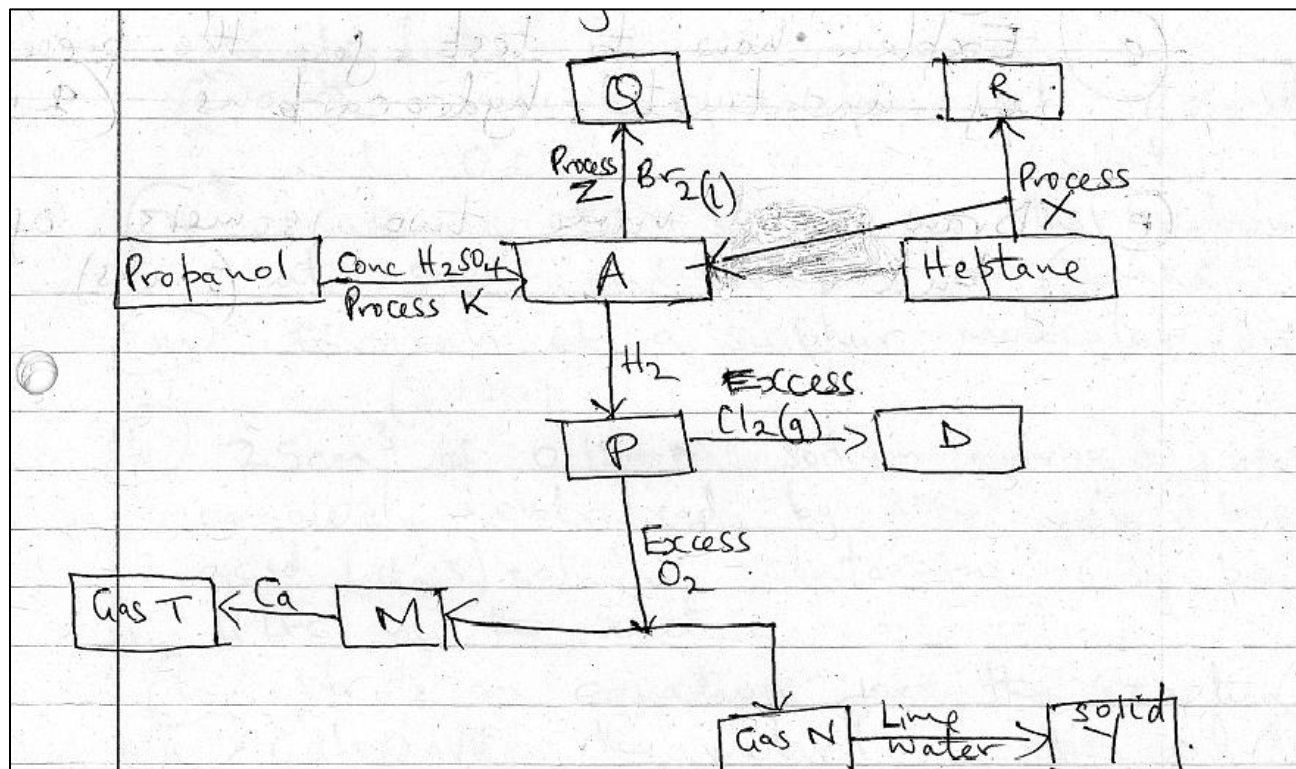 Q
R
Process
Z
Br2(l)
Process
X
Propanol
Conc H2SO4
Process K
A
Heptane
H2
Excess
Cl2(g)
P
D
Excess
O2
Gas T
Ca
M
Gas N
Lime
water
solid
Y